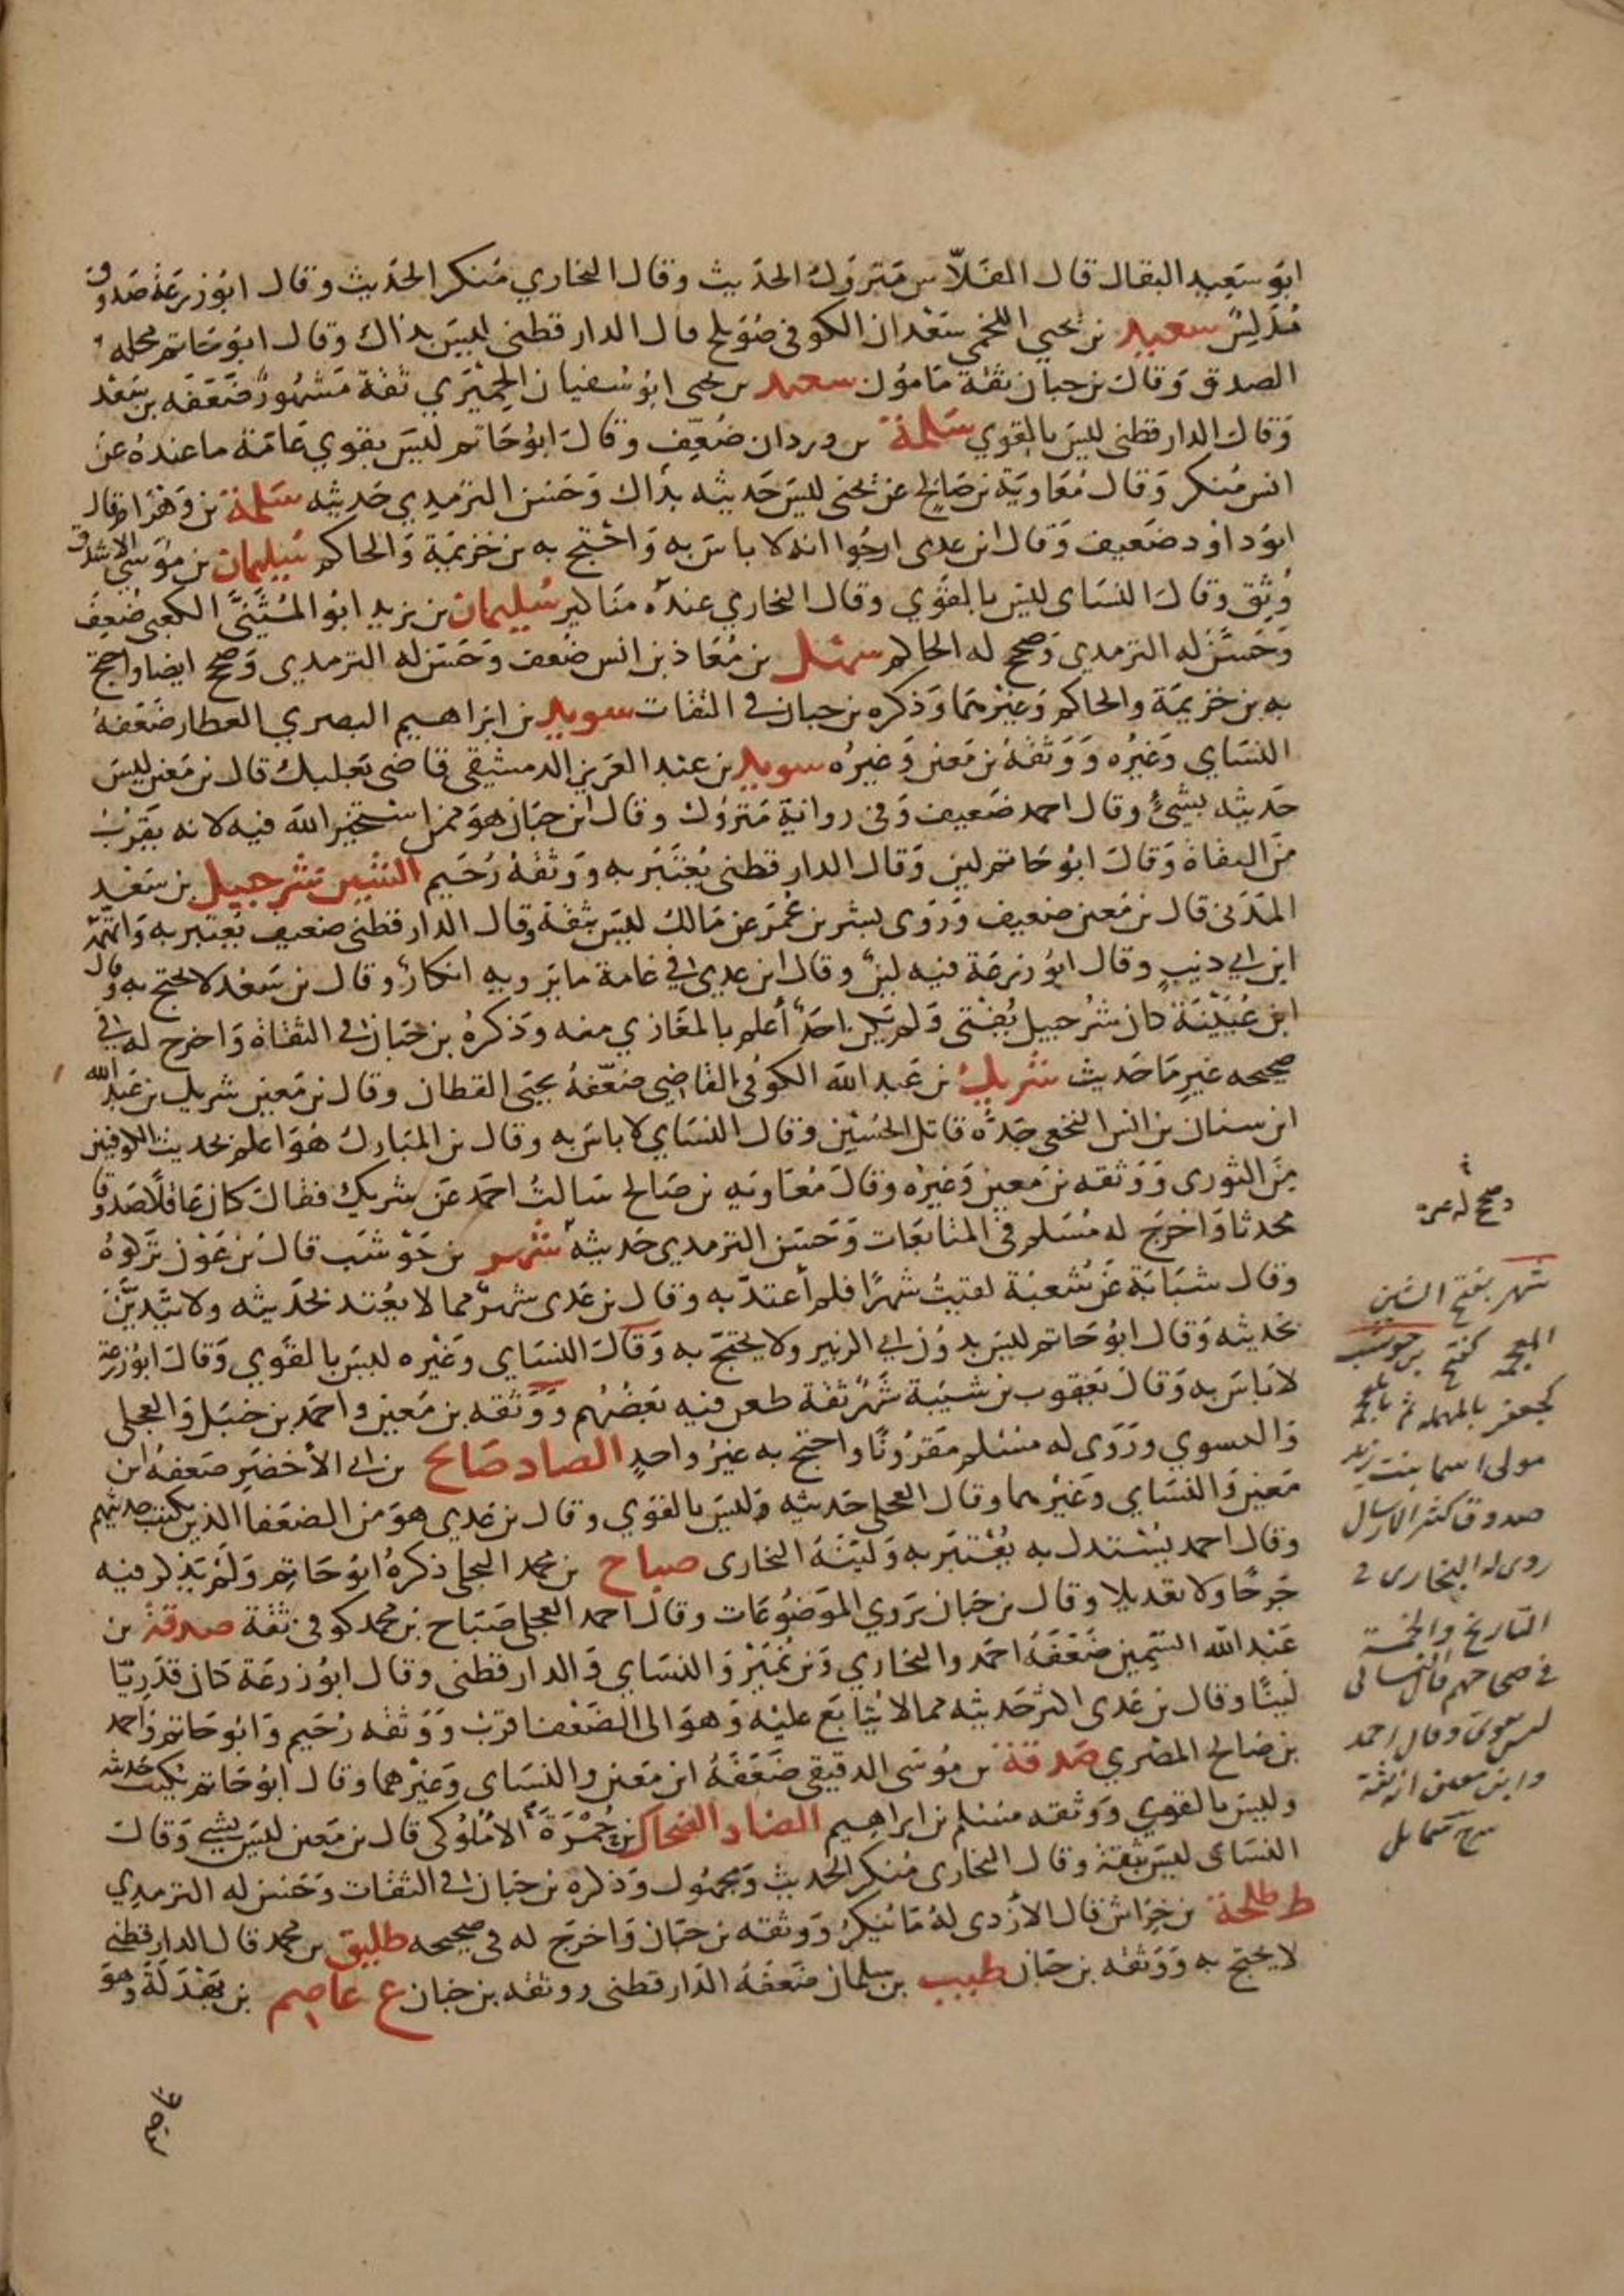 ابو سعيد البقال قال الفلاس متروك الحديث وقال البخاري منكر الحديث وقال ابو زرعة صدوق
مدلس سعيد بن يحيى اللخمي سعدان الكوفي صويلح قال الدارقطني ليس بذاك وقال ابو حاتم محله
الصدق وقال بن حبان ثقة مامون سعيد بن يحيى ابو سفيان الحميري ثقة مشهور ضعفه بن سعد
وقال الدارقطني ليس بالقوي سلمة بن وردان ضعف وقال ابو حاتم ليس بقوي عامة ما عنده عن
انس منكر وقال معاوية بن صالح عن يحيى ليس حديثه بذاك وحسن الترمدي حديثه سلمة بن وهرام قال
ابو داود ضعيف وقال ابن عدى ارجوا انه لا باس به واحتج به بن خزيمة والحاكم سليمان بن موسى الاشدق
وثق وقال النساى ليس بالقوي وقال البخاري عنده مناكير سليمان بن يزيد ابو المثنى الكعبي ضعف
وحسن له الترمدي وصحح له الحاكم سهل بن معاذ بن انس ضعف وحسن له الترمدي وصحح ايضا واحتج
به بن خزيمة والحاكم وغيرهما وذكره بن حبان في الثقات سويد بن ابراهيم البصري العطار ضعفه
النساي وغيره ووثقه بن معين وغيره سويد بن عبد العزيز الدمشقي قاضي بعلبك قال بن معين ليس
حديثه بشئ وقال احمد ضعيف وفي رواية متروك وقال ابن حبان هو ممن استخير الله فيه لانه يقرب
من الثقاة وقال ابو حاتم لين وقال الدارقطني يعتبر به ووثقه دحيم الشين شرحبيل بن سعد
المدني قال بن معين ضعيف وروى بشر بن عمر عن مالك ليس بثقة وقال الدارقطني ضعيف يعتبر به واتهمه
ابن ابي ذيب وقال ابو زرعة فيه لين وقال ابن عدي في عامة ما يرويه انكار وقال بن سعد لا يحتج به وقال
ابن عيينة كان شرحبيل يفتي ولم يكن احد أعلم بالمغازي منه وذكره بن حبان في الثقاة واخرج له في
صحيحه غير ما حديث شريك بن عبد الله الكوفي القاضي ضعفه يحيى القطان وقال بن معين شريك بن عبد الله
ابن سنان بن انس النخعي جده قاتل الحسين وقال النساي لا باس به وقال بن المبارك هو اعلم بحديث الكوفيين
من الثورى ووثقه بن معين وغيره وقال معاويه بن صالح سالت احمد عن شريك فقال كان عاقلا صدوقا
محدثا واخرج له مسلم في المتابعات وحسن الترمدي حديثه شهر بن حوشب قال بن عون تركوه
وقال شبابة عن شعبة لقيت شهرا فلم أعتد به وقال بن عدى شهر مما لا يعتد بحديثه ولا يتدين
بحديثه وقال ابو حاتم ليس بدون ابي الزبير ولا يحتج به وقال النساي وغيره ليس بالقوي وقال ابو زرعة
لا باس به وقال يعقوب بن شيبة شهر ثقة طعن فيه بعضهم ووثقه بن معين واحمد بن حنبل والعجلي
والفسوي وروى له مسلم مقرونا واحتج به غير واحد الصاد صالح بن ابي الأخضر ضعفه ابن
معين والنساي وغيرهما وقال العجلي حديثه وليس بالقوي وقال بن عدي هو من الضعفا الذين يكتب حديثهم
وقال احمد يستدل به يعتبر به ولينه البخارى صباح بن محمد البجلي ذكره ابو حاتم ولم يذكر فيه
جرحا ولا تعديلا وقال بن حبان يروي الموضوعات وقال احمد العجلي صباح بن محمد كوفي ثقة صدقة بن
عبد الله السمين ضعفه احمد والبخاري وبن نمير والنساي والدارقطني وقال ابو زرعة كان قدريا
لينا وقال بن عدى اكثر حديثه مما لا يتابع عليه وهو الى الضعف اقرب ووثقه دحيم وابو حاتم واحمد
بن صالح المصري صدقة بن موسى الدقيقي ضعفه ابن معين والنساى وغيرهما وقال ابو حاتم يكتب حديثه
وليس بالقوي ووثقه مسلم بن ابراهيم الضاد الضحاك بن حمرة الأملوكي قال بن معين ليس بشي وقال
النساى ليس بثقة وقال البخارى منكر الحديث ومجهول وذكره بن حبان في الثقات وحسن له الترمدي
ط طلحة بن خراش قال الأزدي له ما ينكر ووثقه بن حبان واخرج له في صحيحه طليق بن محمد قال الدارقطني
لا يحتج به ووثقه بن حبان طبيب بن سلمان ضعفه الدارقطني ووثقه بن حبان ع عاصم بن بهدلة وهو
عاصم
شهر بفتح الشين
المعجمه بن حوشب
كجعفر بالمهمله ثم بالمعجمة
مولى اسما بنت زيد
صدوق كثير الارسال
روى له البخارى في
التاريخ والخمسة
في صحاحهم قال النسائى
ليس بقوى وقال احمد
وابن معين انه ثقة